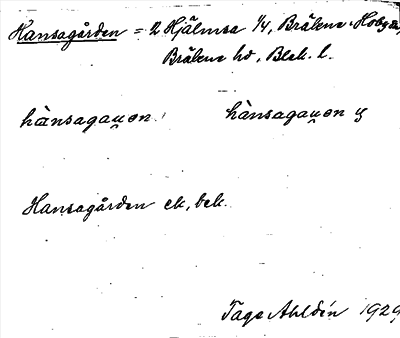 Hansagården = 2 Hjälmsa 1/4, Bräkne-Hoby sn,
Bräkne hd, Blek. l.
hànsagau̯ən. hànsagau̯ən ʒ
Hansagården ek, bek.
Tage Ahldén 1929